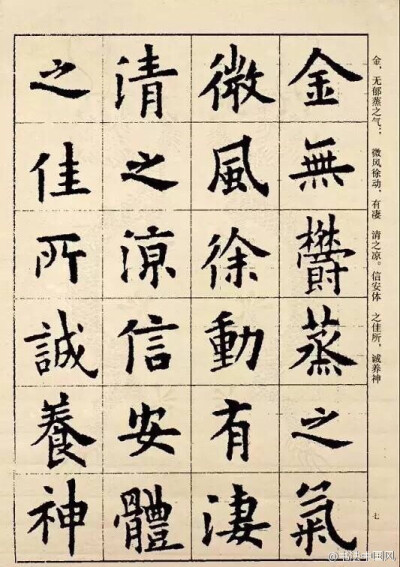 金無鬱蒸之氣
微風徐動有淒
清之涼信安體
之佳所誠養神
金，无郁蒸之气；微风徐动，有凄清之凉。信安体之佳所，诚养神
七
@书法中国风